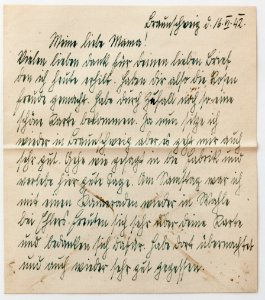 Braunschweig d. 16.VI.42.
Meine liebe Mama!
Vielen lieben Dank für deinen lieben Brief
den ich heute erhielt. Haben dir also die Rosen
freude gemacht. Habe durch Zufall noch so eine
schöne Karte bekommen. Ja nun sitze ich
wieder in Braunschweig aber es geht mir auch
sehr gut. Gehe wie gesagt in die Fabrik und
verlebe hier gute Tage. Am Samstag war ich
mit einem Kameraden wieder in
bei Ehlers freuten sich sehr über deine Karte
und bedanken sich dafür. Habe dort übernachtet
und auch wieder sehr gut gegessen.